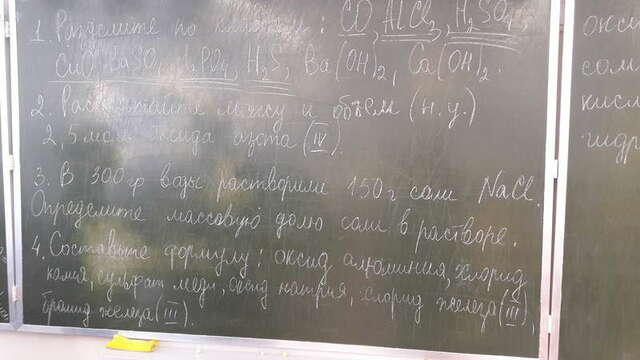 1. Разделите по классам: CO, AlCl3, H2SO4,
CuO, BaSO4, H3PO4, H2S, Ba(OH)2, Ca(OH)2.
2. Рассчитайте массу и объём (н.у.)
2,5 моль оксида азота (IV).
3. В 300 гр воды растворили 150 г соли NaCl.
Определите массовую долю соли в растворе.
4. Составьте формулу: оксид алюминия, хлорид
калия, сульфат меди, оксид натрия, хлорид железа (III),
бромид железа (III).
окси
соли
кисл
гидр